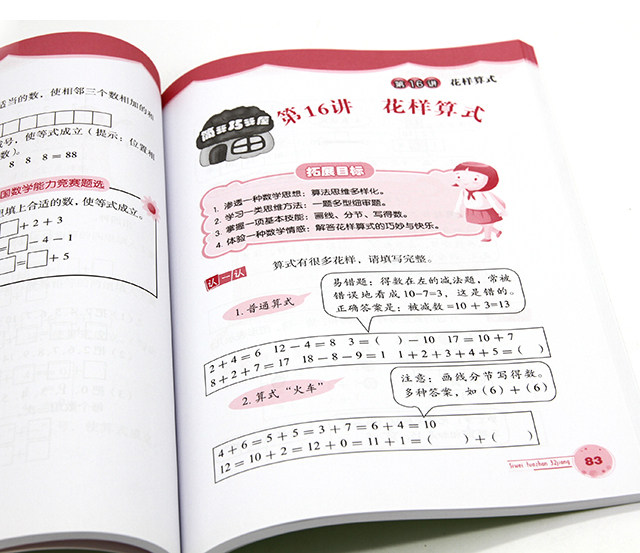 适当的数，使相邻三个数相加的和
号，使等式成立（提示：位置相
数）。
8 8 8 = 88
国数学能力竞赛题选
里填上合适的数，使等式成立。
+ 2 + 3
- 4 - 1
= + 5
第16讲 花样算式
第16讲 花样算式
拓展目标
1. 渗透一种数学思想：算法思维多样化。
2. 学习一类思维方法：一题多型细审题。
3. 掌握一项基本技能：画线、分节、写得数。
4. 体验一种数学情感：解答花样算式的巧妙与快乐。
算式有很多花样，请填写完整。
认一认
易错题：得数在左的减法题，常被
错误地看成10-7=3，这是错的。
正确答案是：被减数=10+3=13
1. 普通算式
2 + 4 = 6 12 - 4 = 8 3 = ( ) - 10 17 = 10 + 7
8 + 2 + 7 = 17 18 - 8 - 9 = 1 1 + 2 + 3 + 4 + 5 = ( )
注意：画线分节写得数。
多种答案，如(6)+(6)
2. 算式“火车”
4 + 6 = 5 + 5 = 3 + 7 = 6 + 4 = 10
12 = 10 + 2 = 12 + 0 = 11 + 1 = ( ) + ( )
Siwei tuozhan 32jiang
83